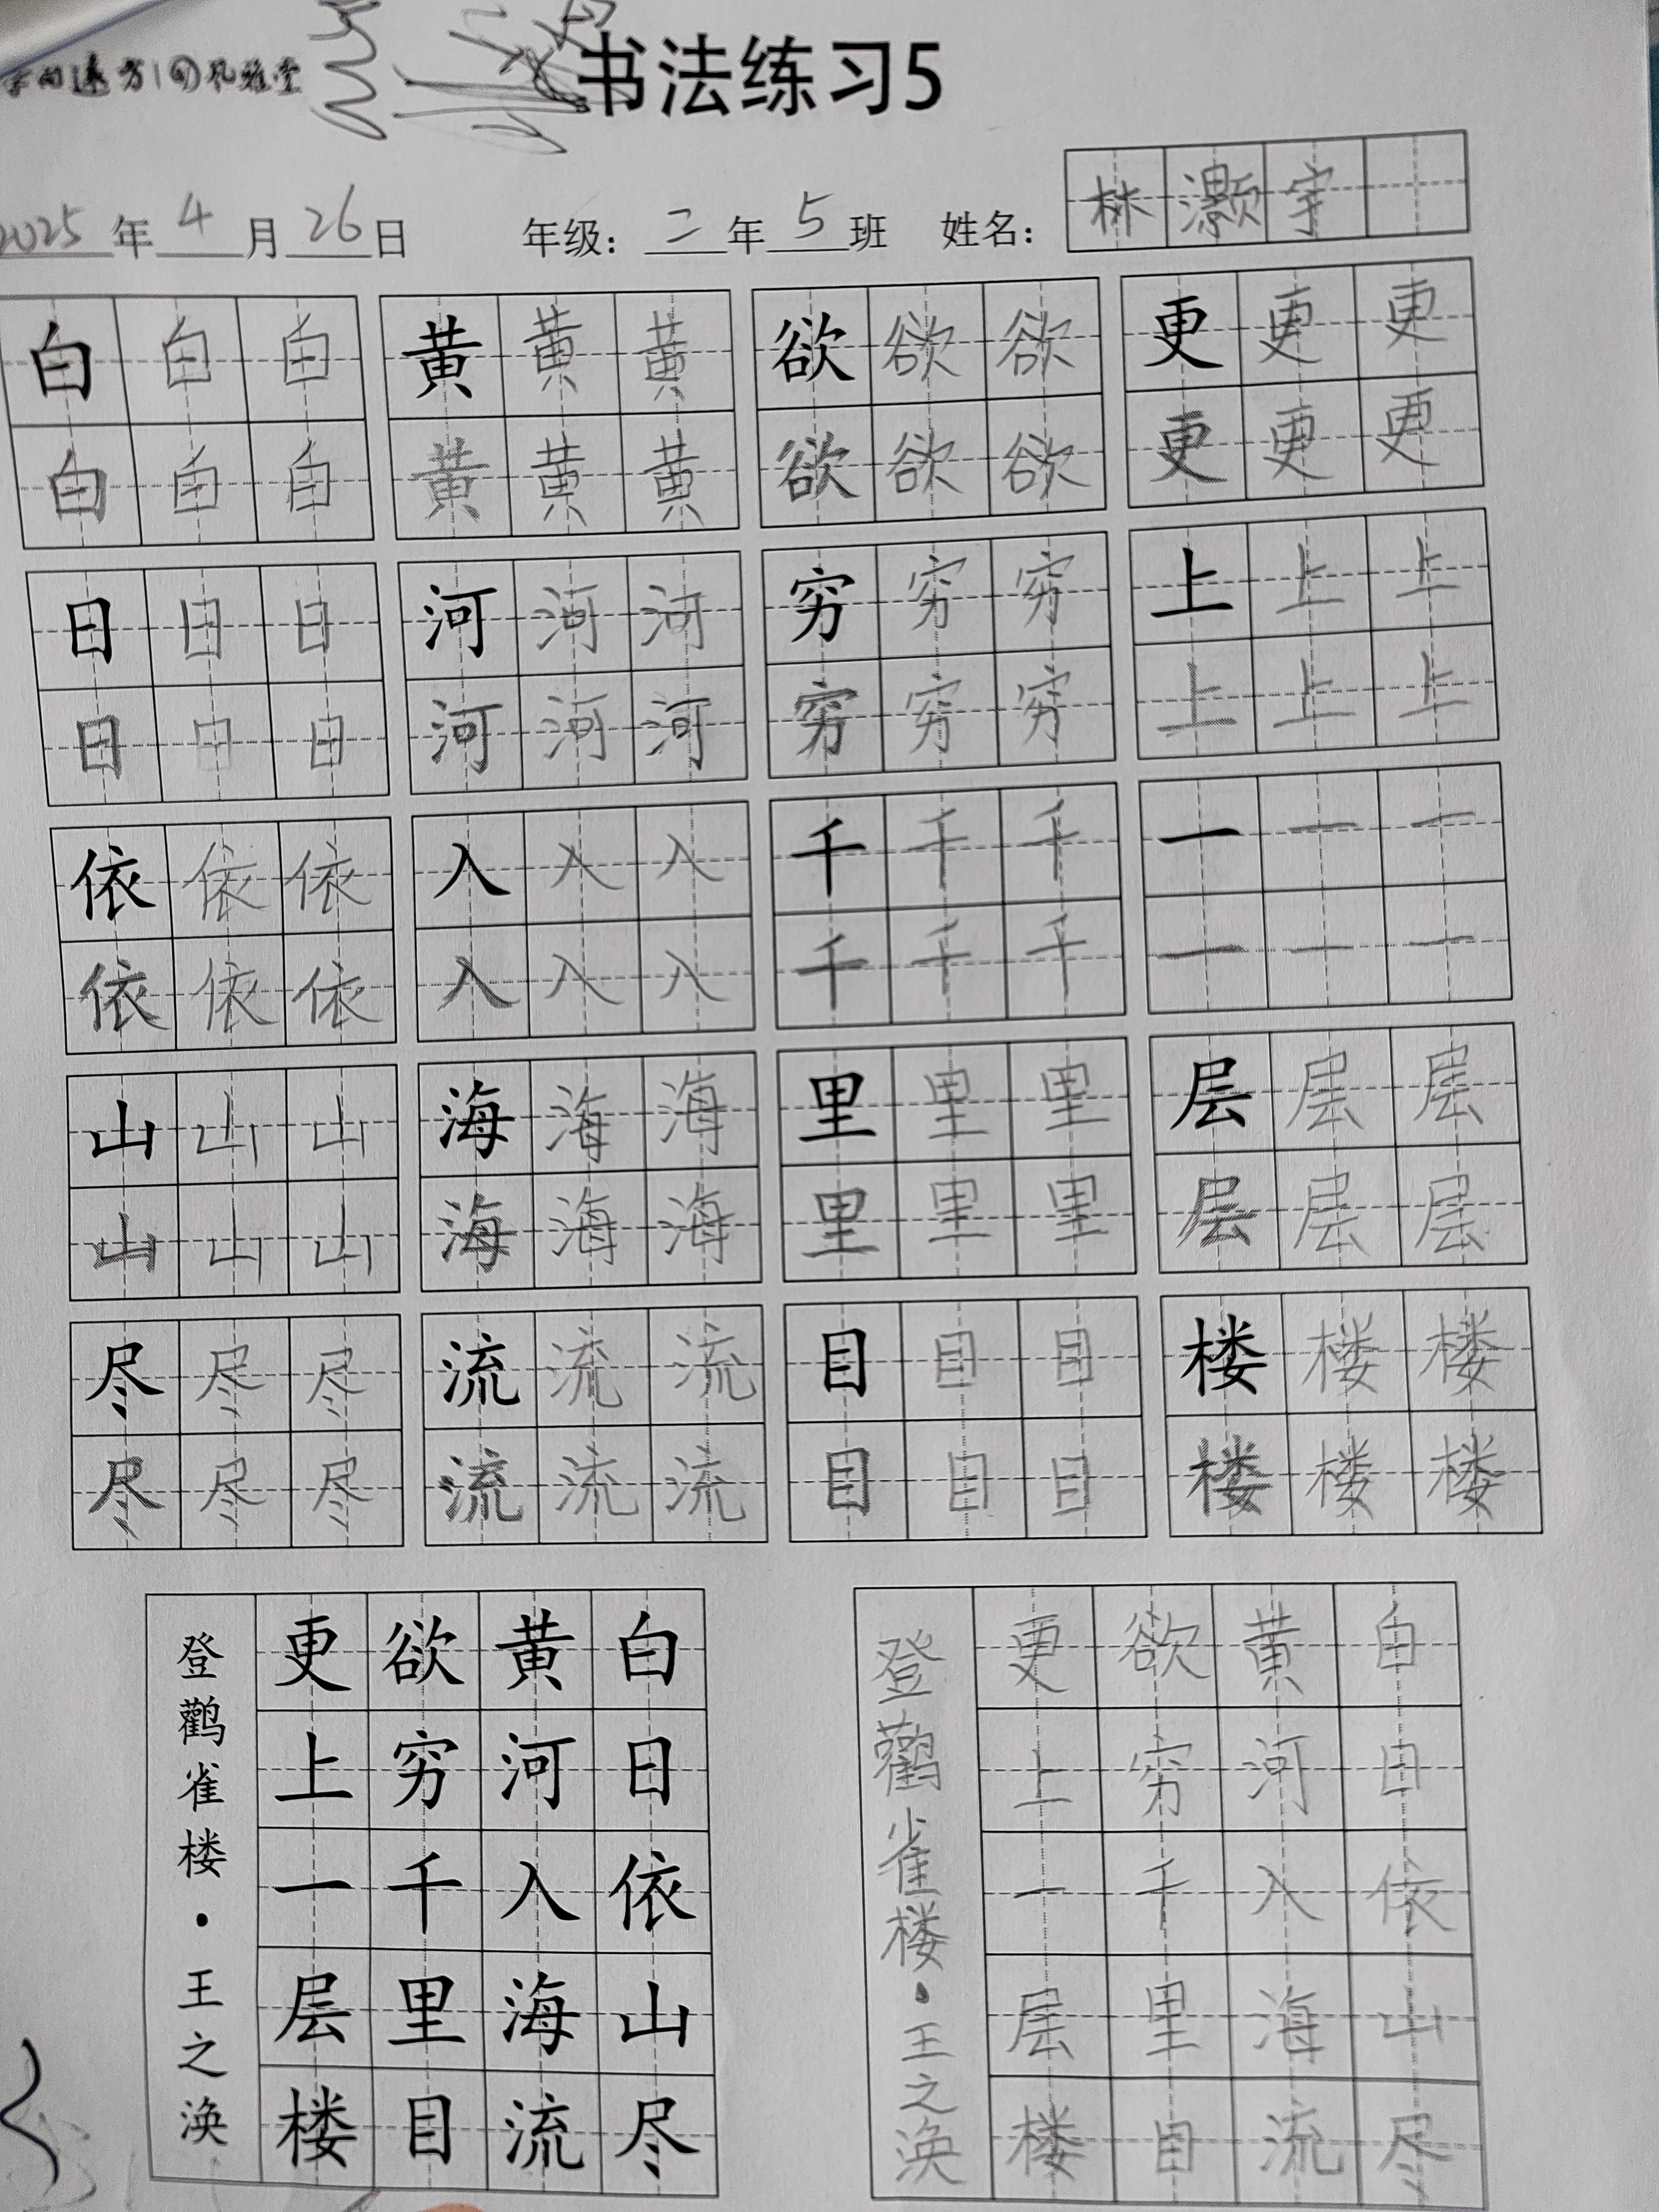 书法练习5
2025年4月26日 年级：二年5班 姓名：林灏宇
白白白 黄黄黄 欲欲欲 更更更
白白白 黄黄黄 欲欲欲 更更更
日日日 河河河 穷穷穷 上上上
日日日 河河河 穷穷穷 上上上
依依依 入入入 千千千 一一一
依依依 入入入 千千千 一一一
山山山 海海海 里里里 层层层
山山山 海海海 里里里 层层层
尽尽尽 流流流 目目目 楼楼楼
尽尽尽 流流流 目目目 楼楼楼
白日依山尽
黄河入海流
欲穷千里目
更上一层楼
登鹳雀楼·王之涣
白日依山尽
黄河入海流
欲穷千里目
更上一层楼
登鹳雀楼·王之涣